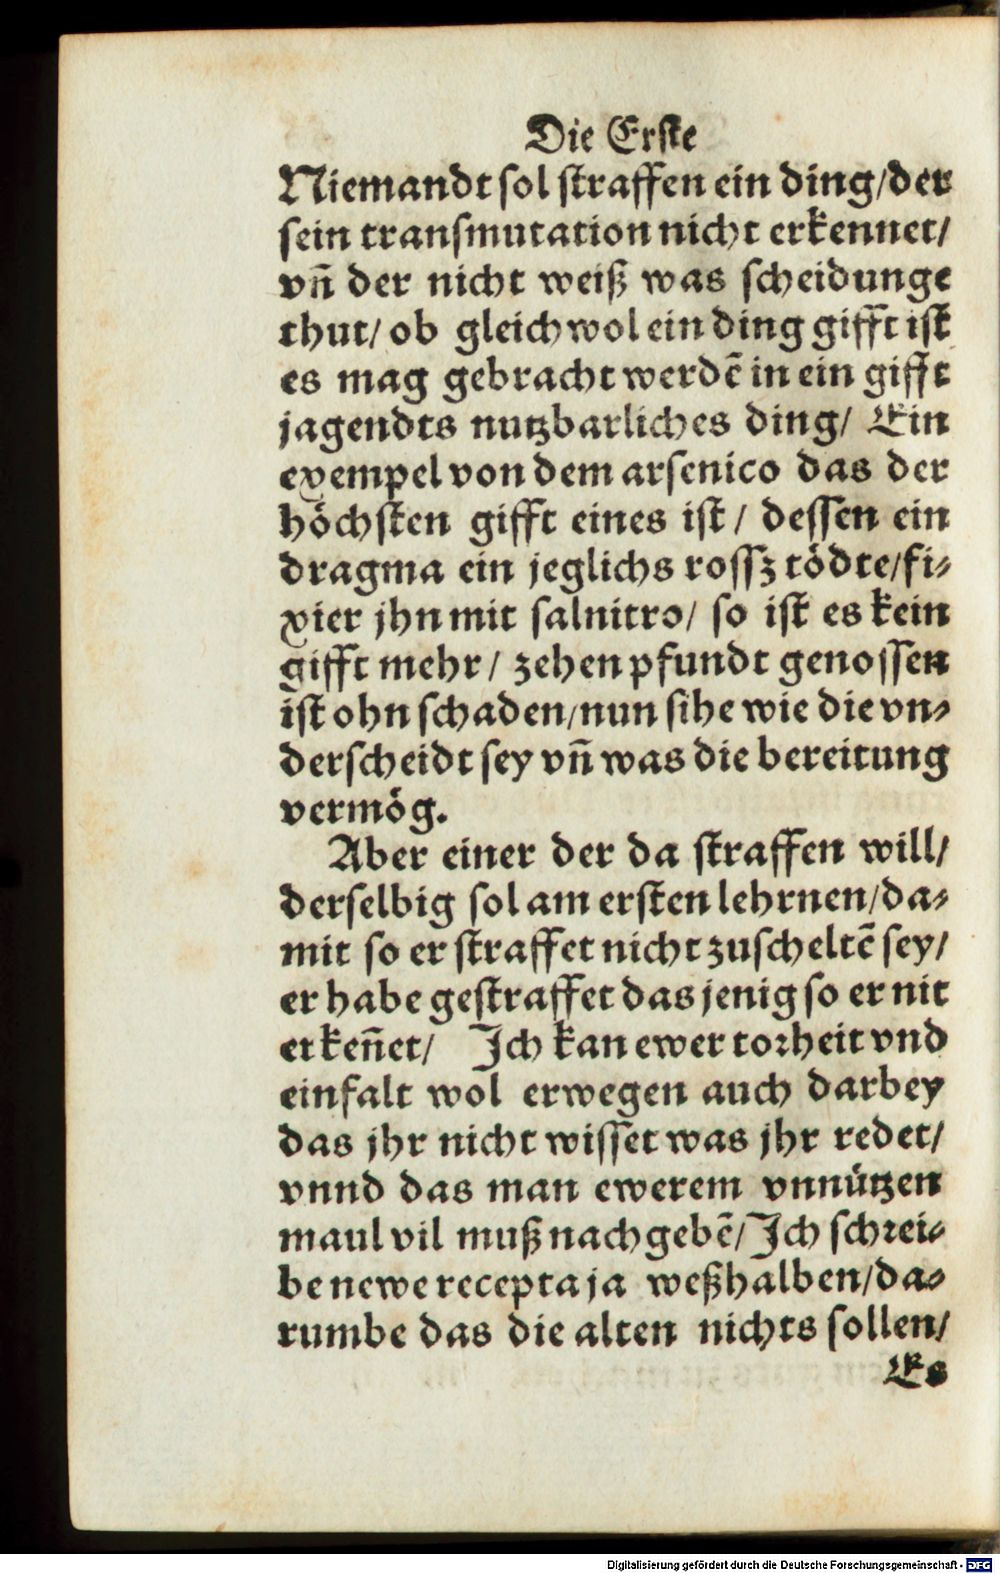 Die Erste
Niemandt sol straffen ein ding/der
sein transmutation nicht erkennet/
vñ der nicht weiß was scheidunge
thut/ ob gleichwol ein ding gifft ist
es mag gebracht werdẽ in ein gifft
jagendts nutzbarliches ding/ Ein
exempel von dem arsenico das der
höchsten gifft eines ist / dessen ein
dragma ein jeglichs rossz tödte/fi-
xier jhn mit salnitro/ so ist es kein
gifft mehr / zehen pfundt genossen
ist ohn schaden/nun sihe wie die vn-
derscheidt sey vñ was die bereitung
vermög.
Aber einer der da straffen will/
derselbig sol am ersten lehrnen/da-
mit so er straffet nicht zuscheltẽ sey/
er habe gestraffet das jenig so er nit
erkeñet/ Ich kan ewer torheit vnd
einfalt wol erwegen auch darbey
das jhr nicht wisset was jhr redet/
vnnd das man ewerem vnnützen
maul vil muß nachgebẽ/Ich schrei-
be newe recepta ja weßhalben/da-
rumbe das die alten nichts sollen/
Es
Digitalisierung gefördert durch die Deutsche Forschungsgemeinschaft - DFG